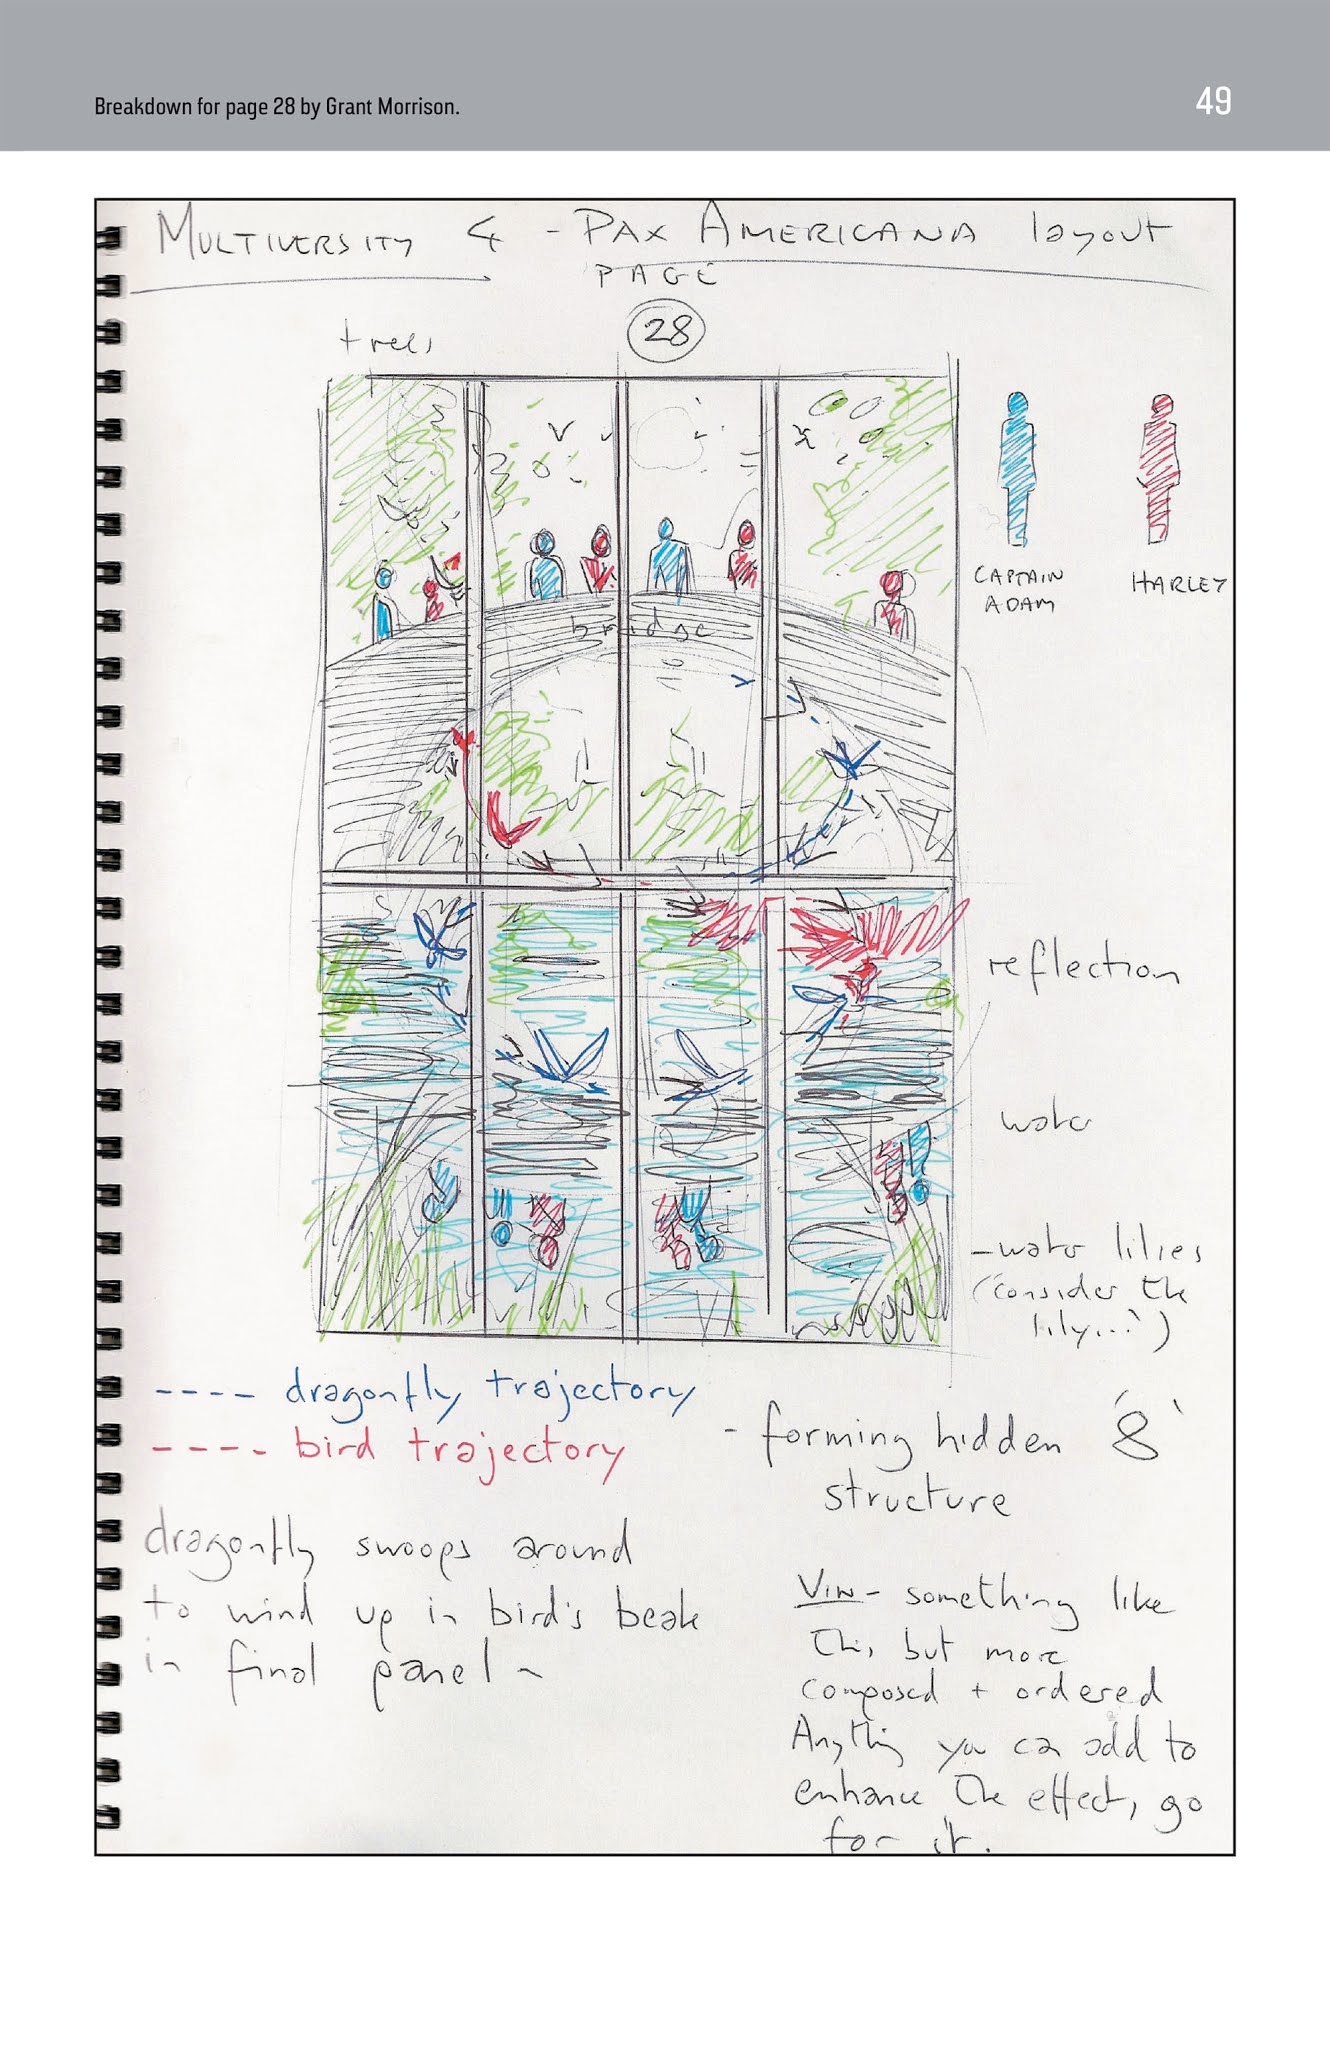 Breakdown for page 28 by Grant Morrison.
49
MULTIVERSITY 4 - PAX AMERICANA layout
PAGE
28
trees
CAPTAIN
ADAM
HARLEY
bridge
reflection
water
- water lilies
('consider the
lily...')
---- dragonfly trajectory
---- bird trajectory
- forming hidden '8'
structure
dragonfly swoops around
to wind up in bird's beak
in final panel -
VIN - something like
this, but more
composed + ordered
Anything you can add to
enhance the effect, go
for it.